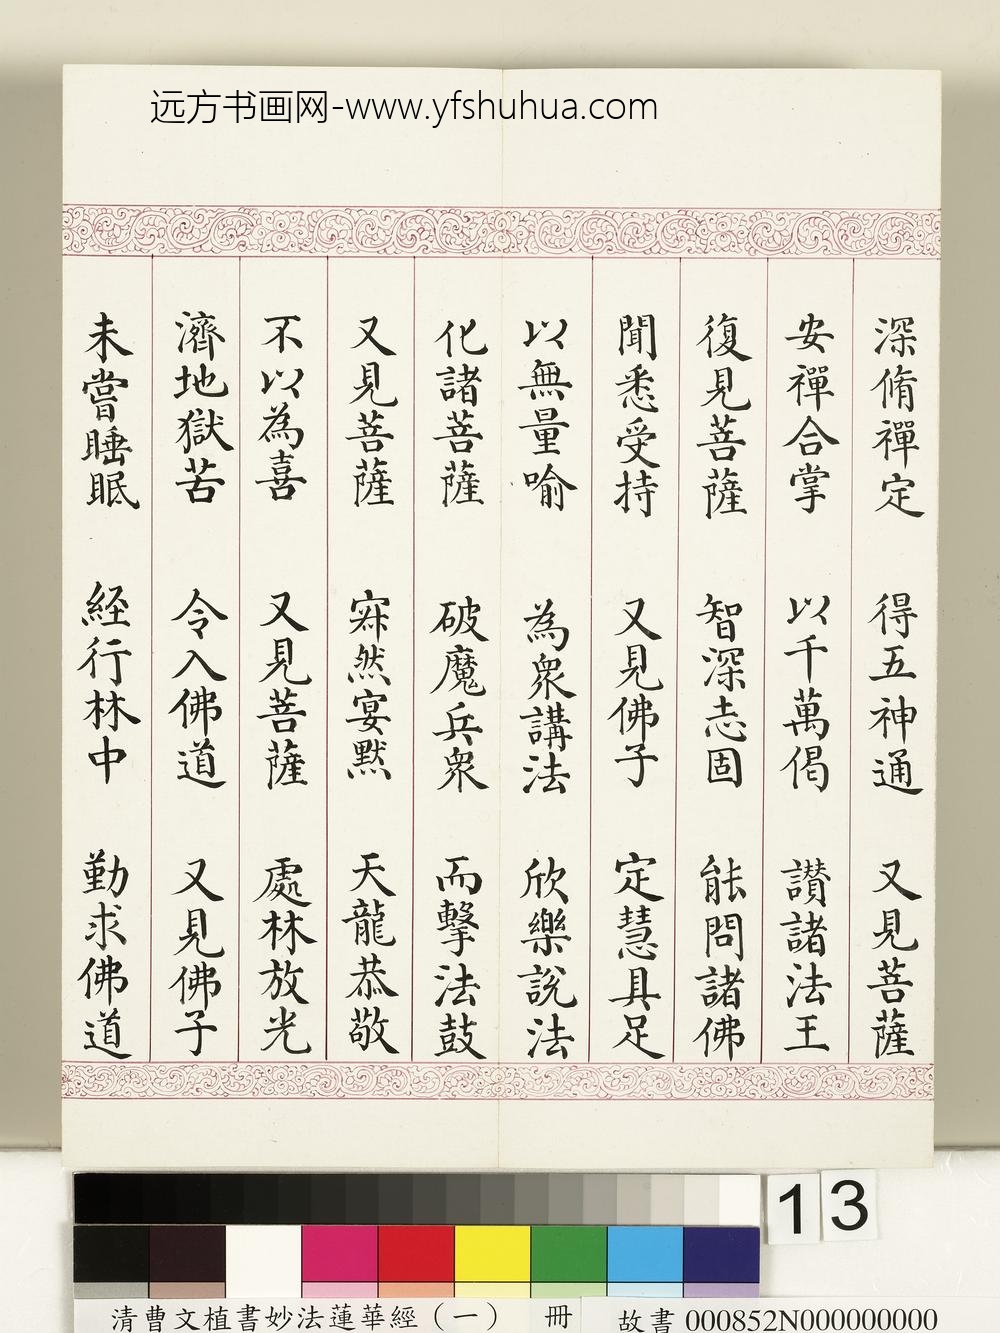 远方书画网-www.yfshuhua.com
深脩禪定 得五神通 又見菩薩
安禪合掌 以千萬偈 讃諸法王
復見菩薩 智深志固 能問諸佛
聞悉受持 又見佛子 定慧具足
以無量喻 為衆講法 欣樂說法
化諸菩薩 破魔兵衆 而擊法鼓
又見菩薩 寂然宴黙 天龍恭敬
不以為喜 又見菩薩 處林放光
濟地獄苦 令入佛道 又見佛子
未嘗睡眠 経行林中 勤求佛道
13
清曹文植書妙法蓮華經（一） 冊 故書000852N000000000